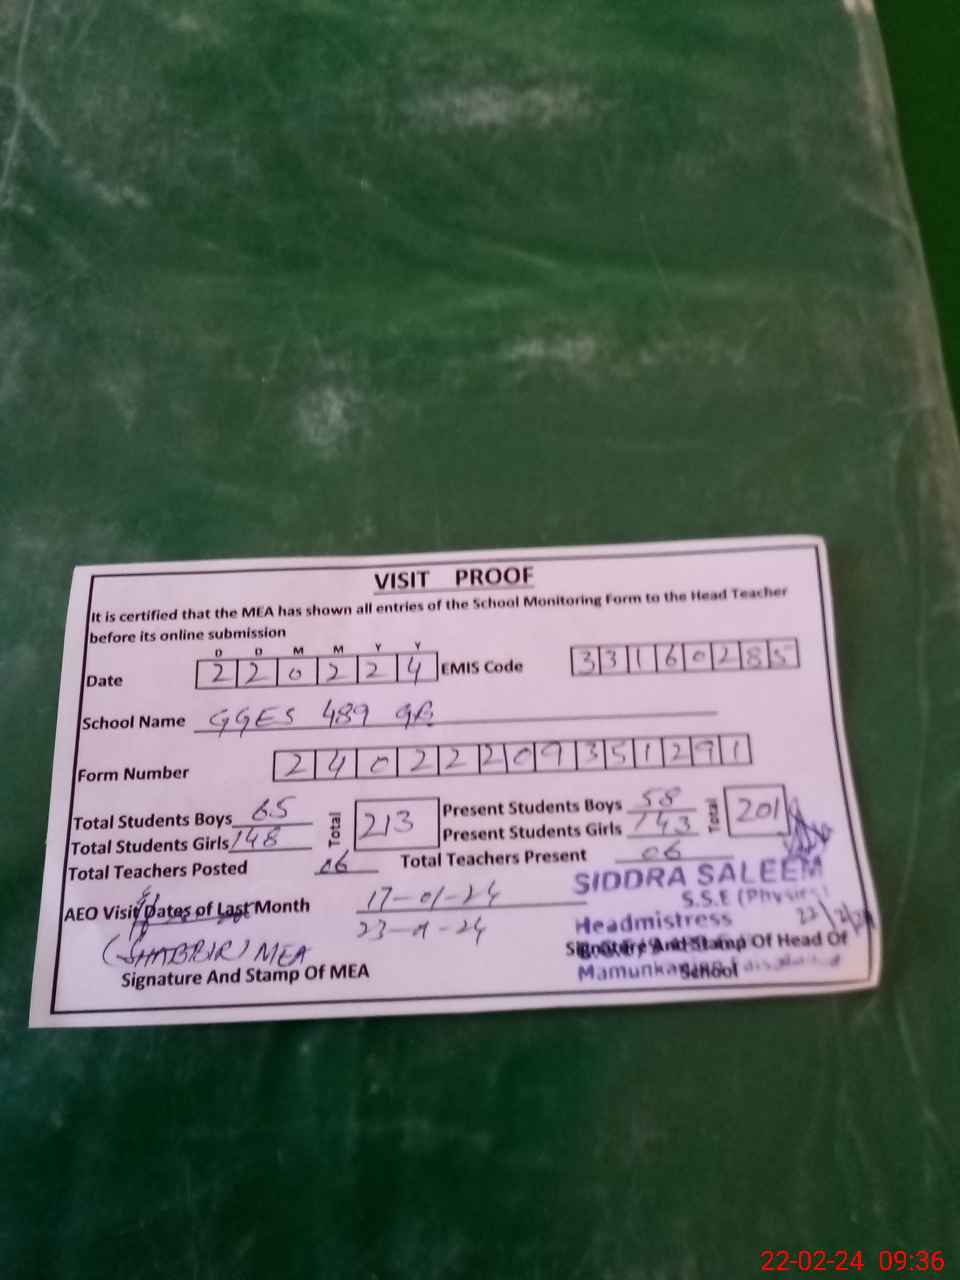 VISIT PROOF
It is certified that the MEA has shown all entries of the School Monitoring Form to the Head Teacher
before its online submission
D D M M Y Y
Date 2 2 0 2 2 4 EMIS Code 3 3 1 6 0 2 8 5
School Name GGES 489 GB
Form Number 2 4 0 2 2 2 0 9 3 5 1 2 9 1
Total Students Boys 65 Total 213 Present Students Boys 58 Total 201
Total Students Girls 148 Present Students Girls 143
Total Teachers Posted 06 Total Teachers Present 06
SIDDRA SALEEM
S.S.E (Physics)
AEO Visit Dates of Last Month 17-01-24
23-01-24
Headmistress 22/2/24
(SHABBIR) MEA
Signature And Stamp Of MEA
Signature And Stamp Of Head Of
School
Mamunkanjan
22-02-24 09:36